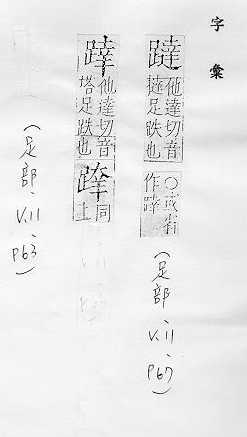 字彙
躂
他達切音
撻足跌也
○或省
作
(足部、V.11、P67)
他達切音
塔足跌也
同
上
(足部、V.11、P63)